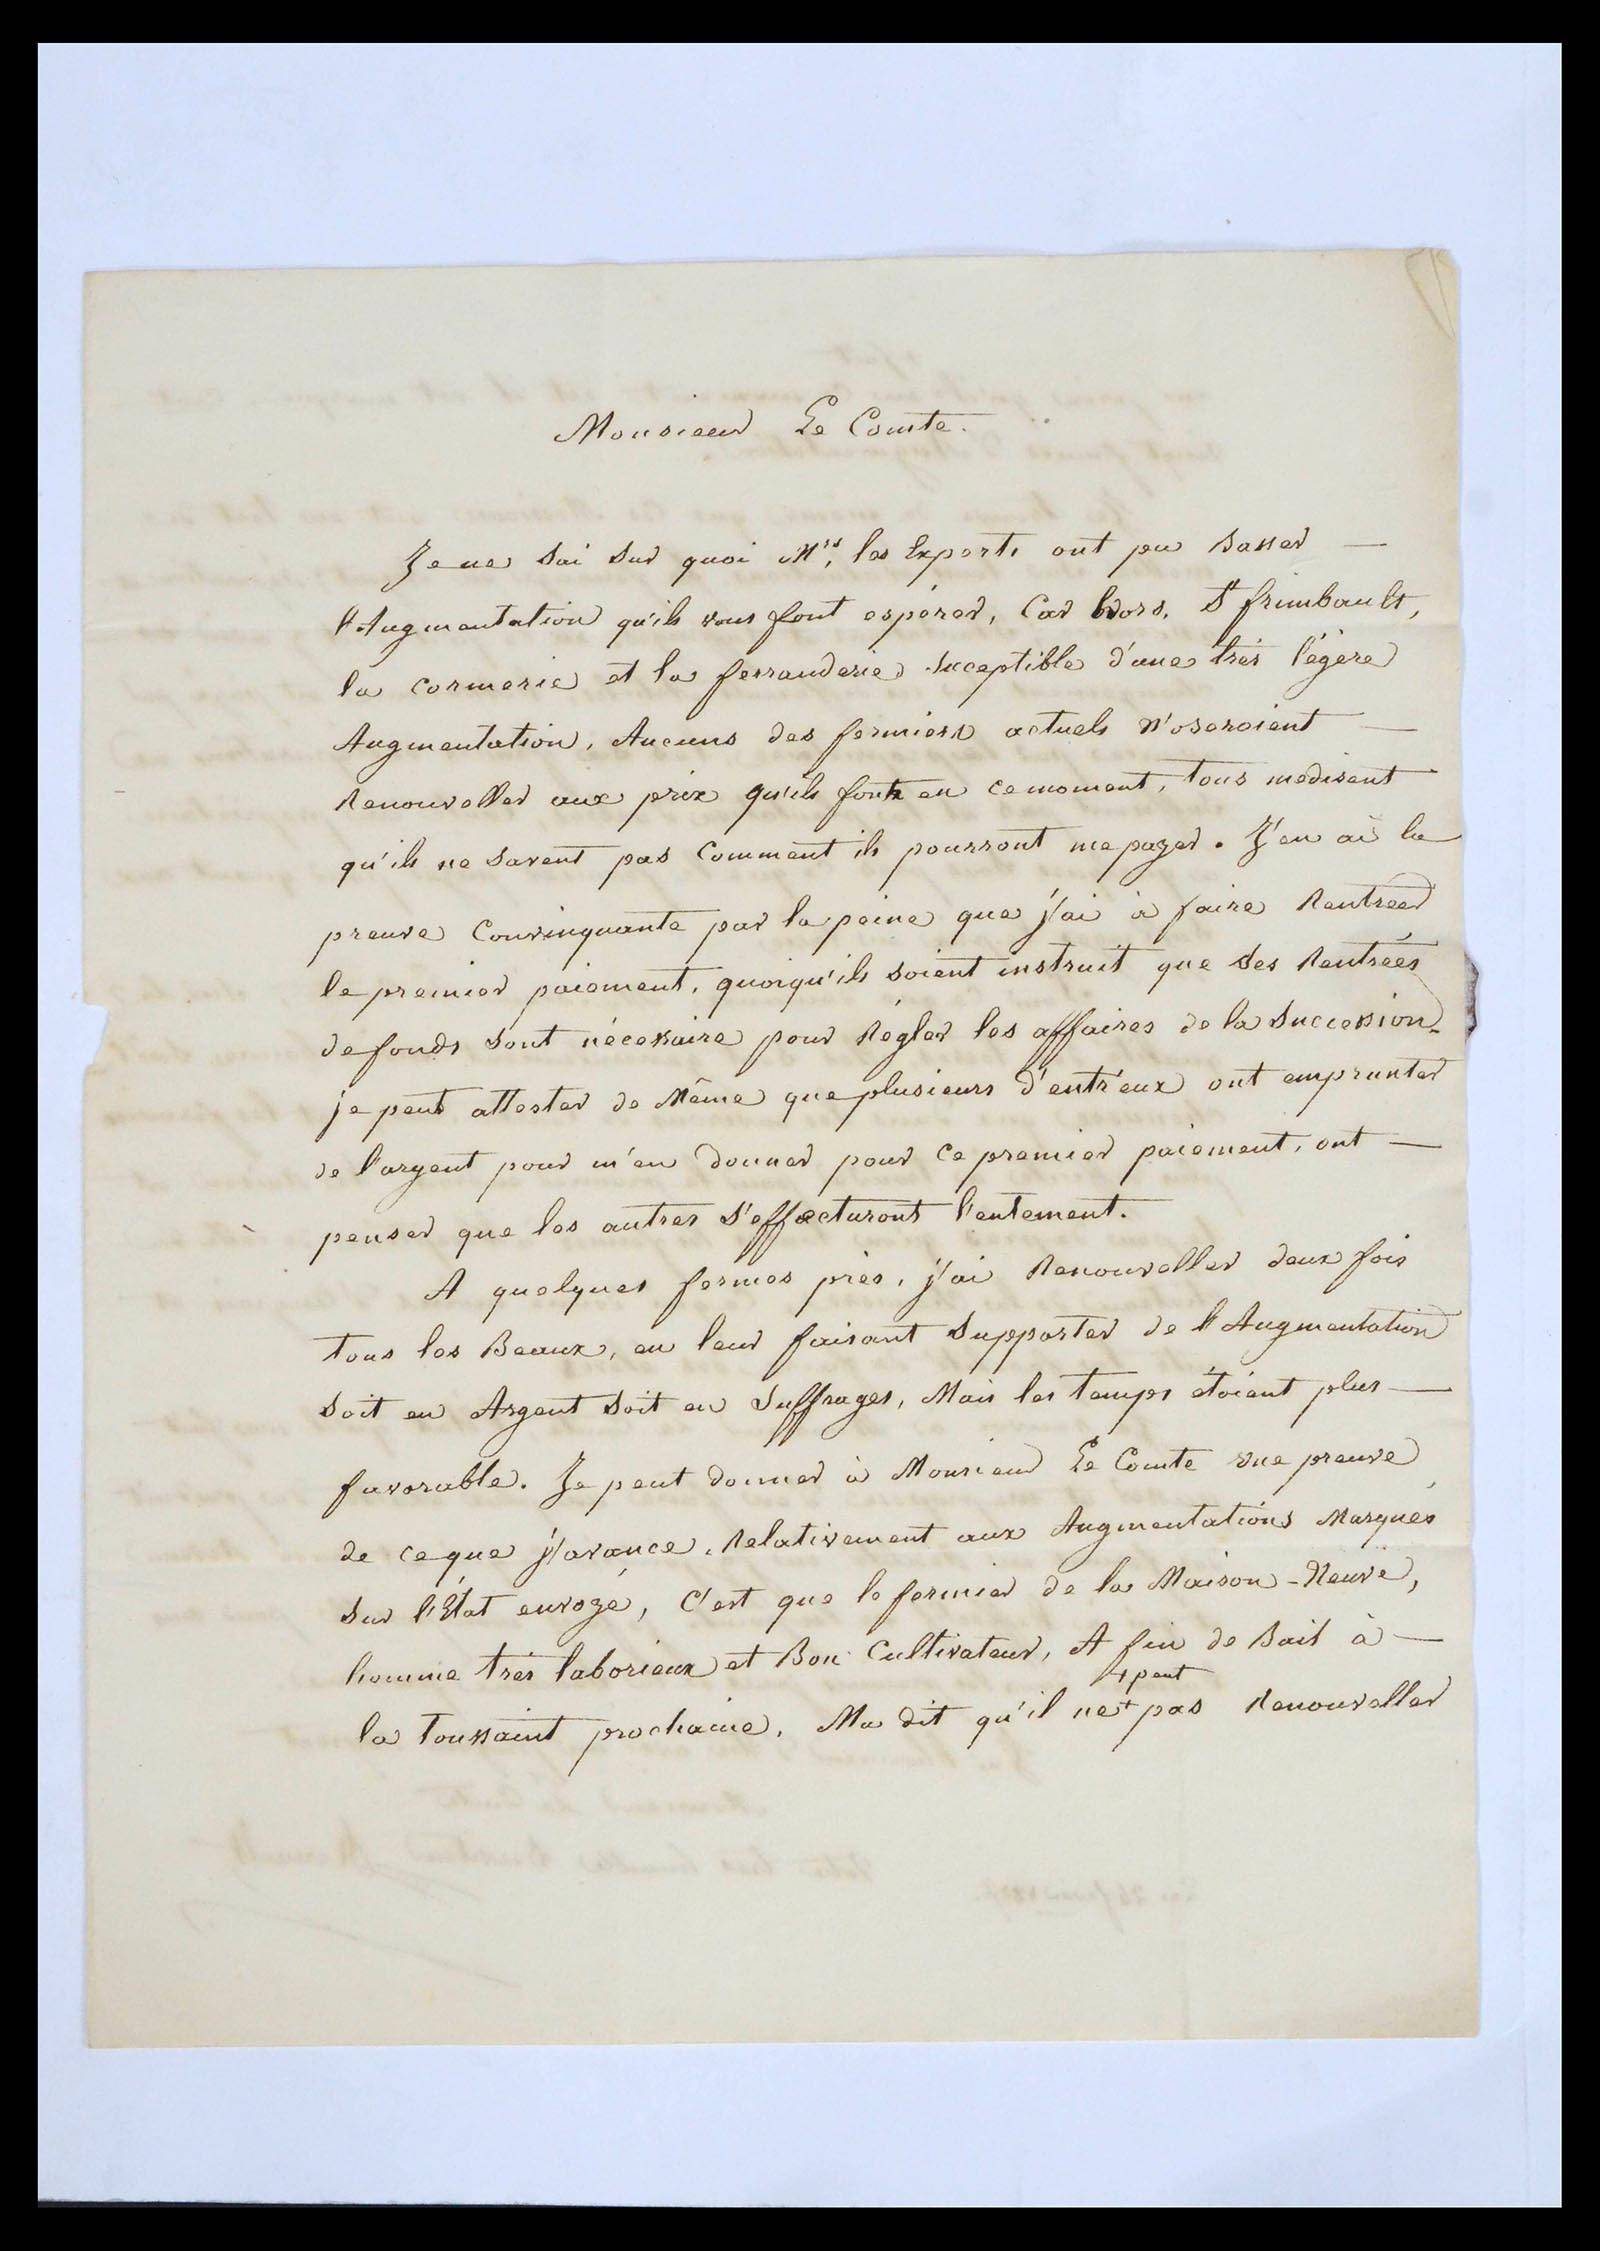 Monsieur Le Comte.
Je ne sai sur quoi Mrs, les Experts ont pu Basser —
l'Augmentation qu'ils vous font espérer, Car hors, St frimbault,
la Cormerie et la ferrauderie suceptible d'une très l'égère
Augmentation, Aucuns des fermiers actuels N'oseroient —
Renouveller aux prix qu'ils font en ce moment, tous me disent
qu'ils ne savent pas Comment ils pourront me payer. J'en ai la
preuve Convinquante par la peine que j'ai à faire Rentréer
le premier paiement, quoiqu'ils soient instruit que des Rentrées
de fonds sont nécessaire pour Régler les affaires de la Succession_
je peut attester de Même que plusieurs d'entr'eux ont emprunter
de l'argent pour m'en donner pour ce premier paiement, ont —
penser que les autres s'effecturont l'entement.
A quelques fermes près, j'ai Renouveller deux fois
tous les Beaux, en leur faisant supporter de l'Augmentation
soit en Argent soit en Suffrages, Mais les temps étoient plus —
favorable. Je peut donner à Monsieur Le Comte une preuve
de ce que j'avance, Relativement aux Augmentations Marqués
sur l'État envoyé, C'est que le fermier de la Maison-Neuve,
homme très laborieux et Bon Cultivateur, A fin de Bail à —
+ peut
la toussaint prochaine, Ma dit qu'il ne + pas Renouveller